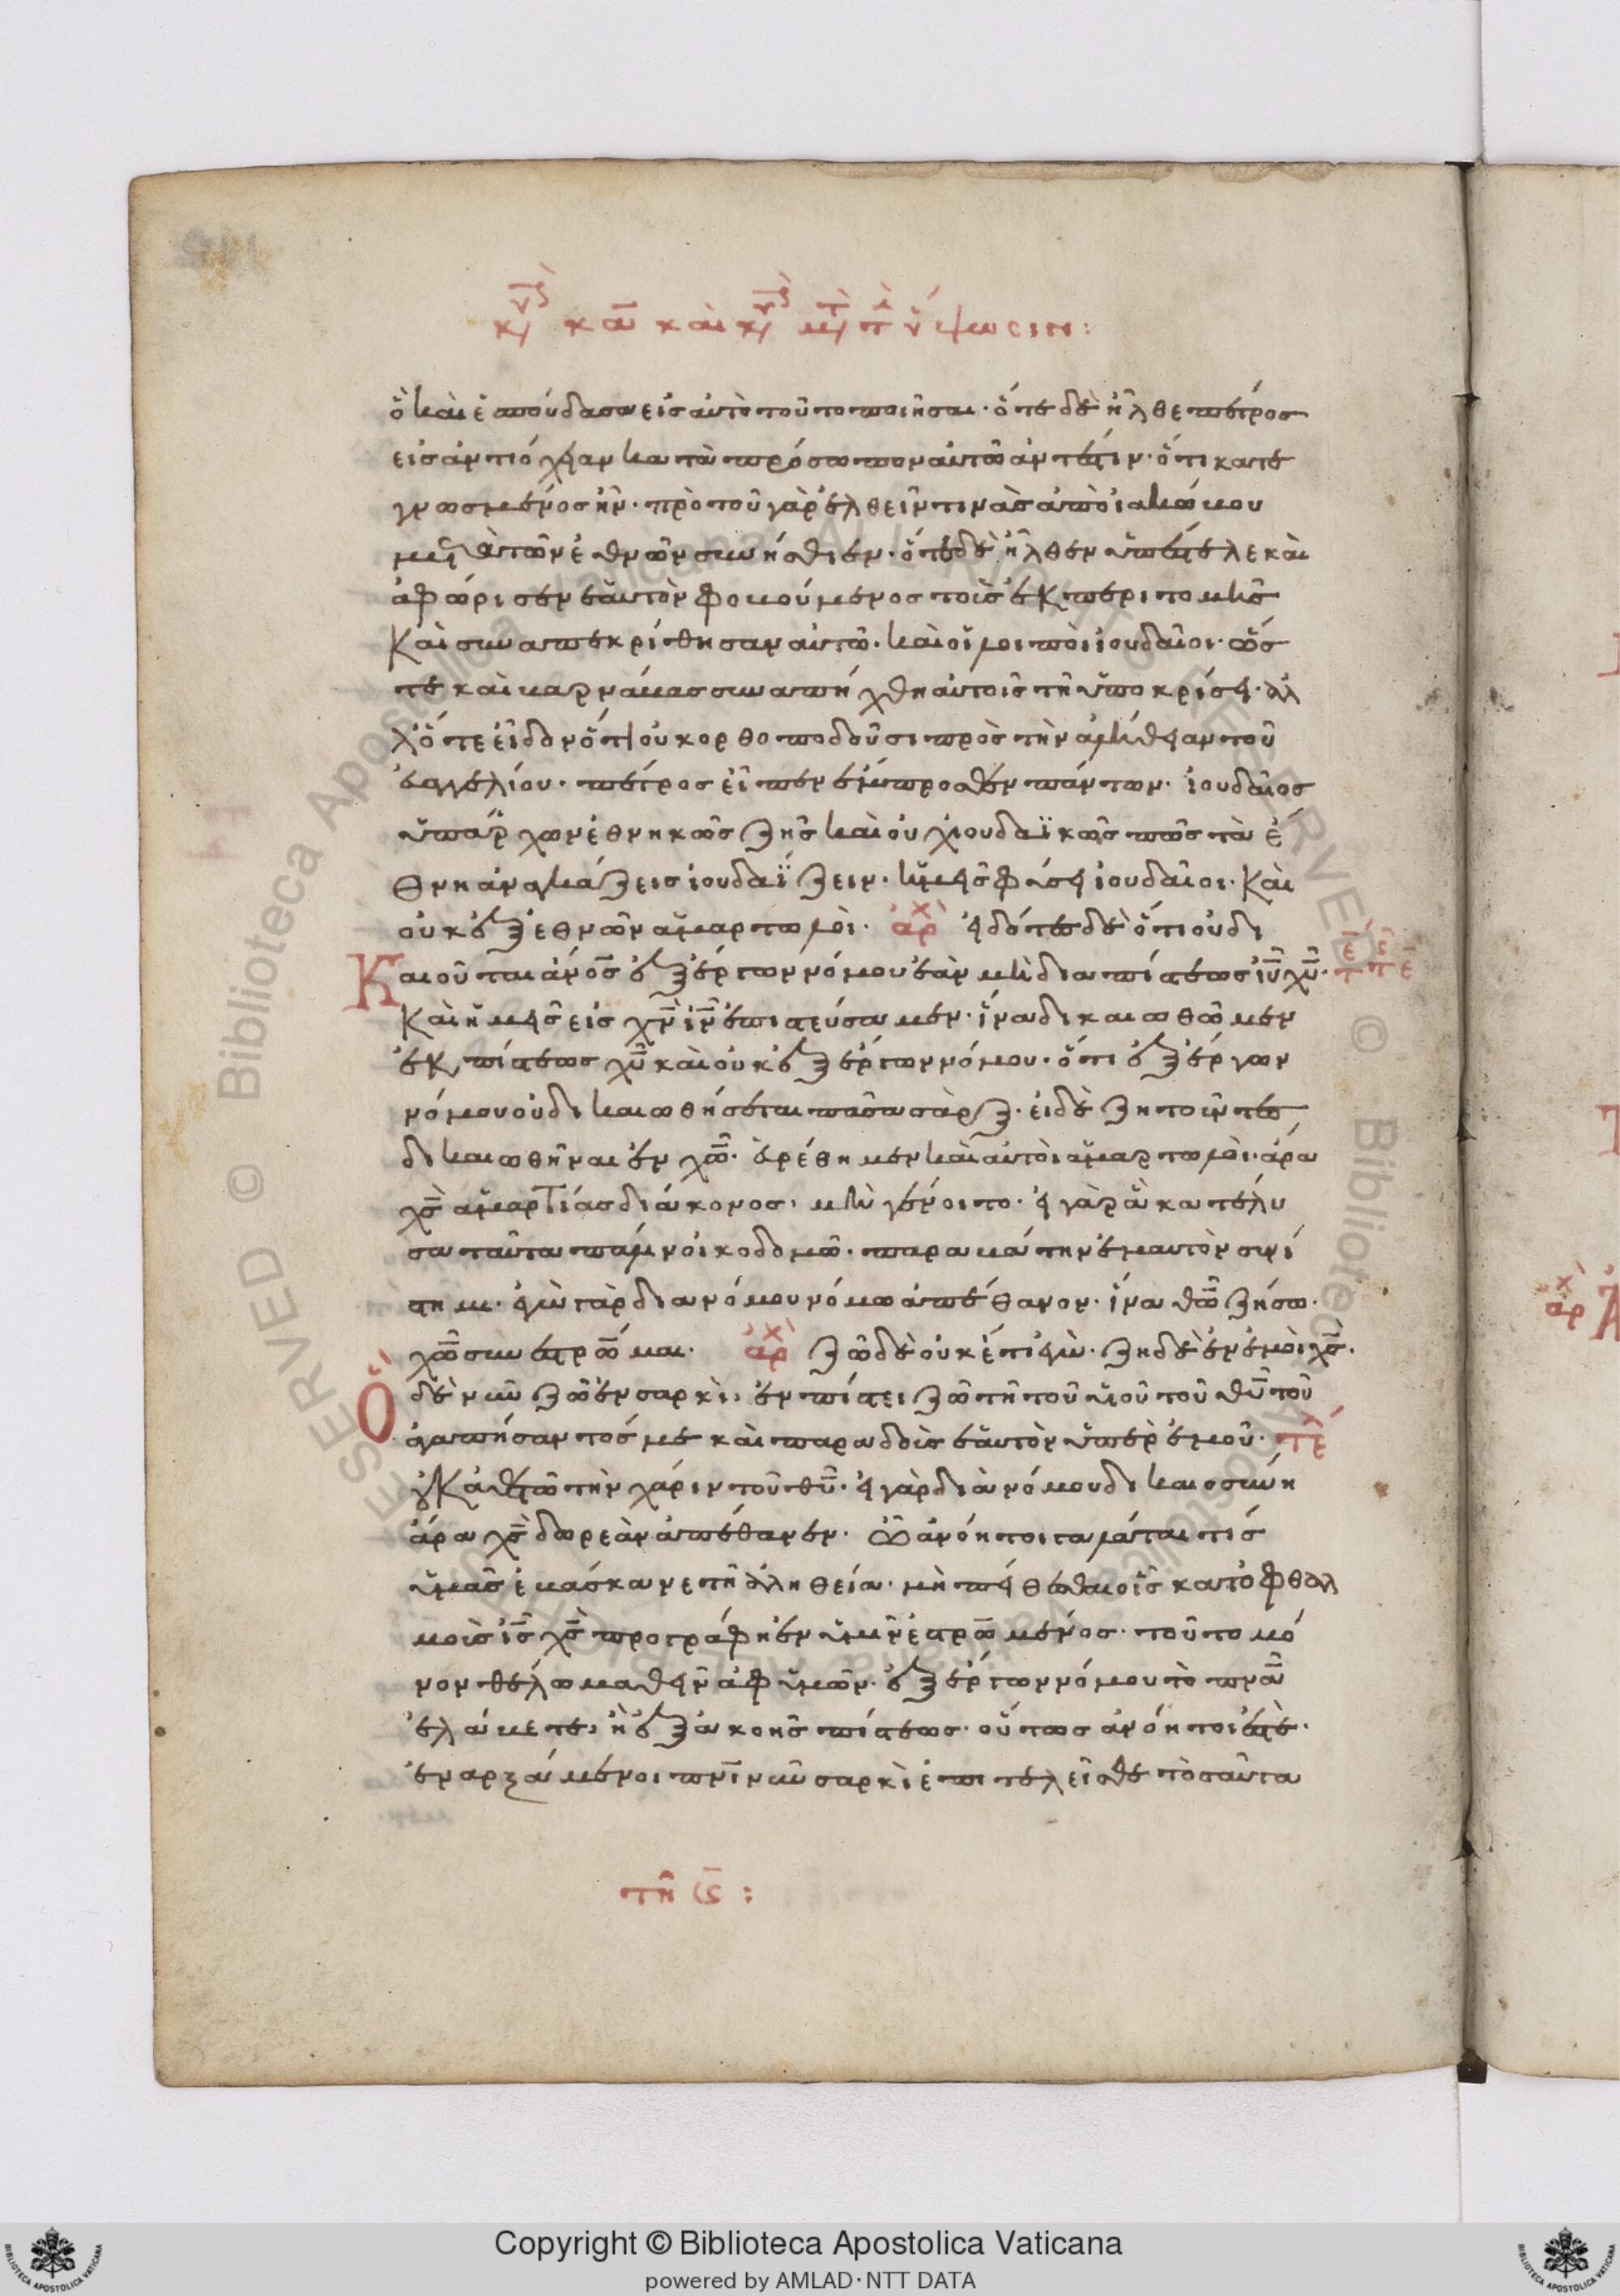 κυ κα καὶ κυ μτ τ ὕψωσιν:
ὃ καὶ ἐσπούδασα εἰς αὐτὸ τοῦτο ποιῆσαι· ὅτε δὲ ἦλθε πέτρος
εἰς ἀντιόχειαν κατὰ πρόσωπον αὐτῶ ἀντέστην· ὅτι κατε
γνωσμένος ἦν· πρὸ τοῦ γὰρ ἐλθεῖν τινὰς ἀπὸ ἰακώβου
μετὰ τῶν ἐθνῶν συνήσθιεν· ὅτε δὲ ἦλθεν ὑπέστελε καὶ
ἀφώριζεν ἑαυτὸν φοβούμενος τοὺς ἐκ περιτομῆς
καὶ συναπεκρίθησαν αὐτῶ· καὶ οἱ λοιποὶ ἰουδαῖοι· ὥσ
τε καὶ βαρνάβας συναπήχθη αὐτοῖς τῆ ὑποκρίσει· ἀλ
λ' ὅτε εἶδον ὅτι οὐκ ὀρθοποδοῦσι πρὸς τὴν ἀλήθειαν τοῦ
εὐαγγελίου· πέτρος εἶπεν ἔμπροσθεν πάντων· ἰουδαῖος
ὑπάρχων ἐθνηκῶς ζῆς καὶ οὐχ ἰουδαϊκῶς πῶς τὰ ἔ
θνη ἀναγκάζεις ἰουδαΐζειν· ἡμεῖς φύσει ἰουδαῖοι· καὶ
οὐκ ἐξ ἐθνῶν ἁμαρτωλοὶ· ἀρχ εἰδότες δὲ ὅτι οὐ δι
Καιοῦται ἄνος ἐξ ἔργων νόμου ἐὰν μὴ διὰ πίστεως ἰυ χυ·
καὶ ἡμεῖς εἰς χν ἰν ἐπιστεύσαμεν· ἵνα δικαιωθῶμεν
ἐκ πίστεως χυ καὶ οὐκ ἐξ ἔργων νόμου· ὅτι ἐξ ἔργων
νόμου οὐ δικαιωθήσεται πᾶσα σὰρξ· εἰ δὲ ζητοῦντες
δικαιωθῆναι ἐν χω· εὑρέθημεν καὶ αὐτοὶ ἁμαρτωλοὶ· ἄρα
χς ἁμαρτίας διάκονος· μὴ γένοιτο· εἰ γὰρ ἃ κατέλυ
σα ταῦτα πάλιν οἰκοδομῶ· παραβάτην ἐμαυτὸν συνί
στημι· ἐγὼ γὰρ διὰ νόμου νόμω ἀπέθανον· ἵνα θω ζήσω·
χω συνεστρωμαι· ἀρχ ζῶ δὲ οὐκ ἔτι ἐγὼ· ζῆ δὲ ἐν ἐμοὶ χς·
Ὃ δὲ νῦν ζῶ ἐν σαρκὶ· ἐν πίστει ζῶ τῆ τοῦ υἱοῦ τοῦ θυ τοῦ
ἀγαπήσαντός με καὶ παραδοὺς ἑαυτὸν ὑπὲρ ἐμοῦ· τε
οὐκ ἀθετῶ τὴν χάριν τοῦ θυ· εἰ γὰρ διὰ νόμου δικαιοσύνη
ἄρα χς δωρεὰν ἀπέθανεν· Ὦ ἀνόητοι γαλάται τίς
ὑμᾶς ἐβάσκανε τῆ ἀληθεία· μὴ πείθεσθαι οἷς κατ' ὀφθαλ
μοὺς ἰς χς προγράφη ἐν ὑμῖν ἐστρωμένος· τοῦτο μό
νον θέλω μαθεῖν ἀφ' ὑμῶν· ἐξ ἔργων νόμου τὸ πνα
ἐλάβετε· ἢ ἐξ ἀκοῆς πίστεως· οὕτως ἀνόητοί ἐστέ·
ἐναρξάμενοι πνι νῦν σαρκὶ ἐπιτελεῖσθε τοσαῦτα
τῆ ϛ: